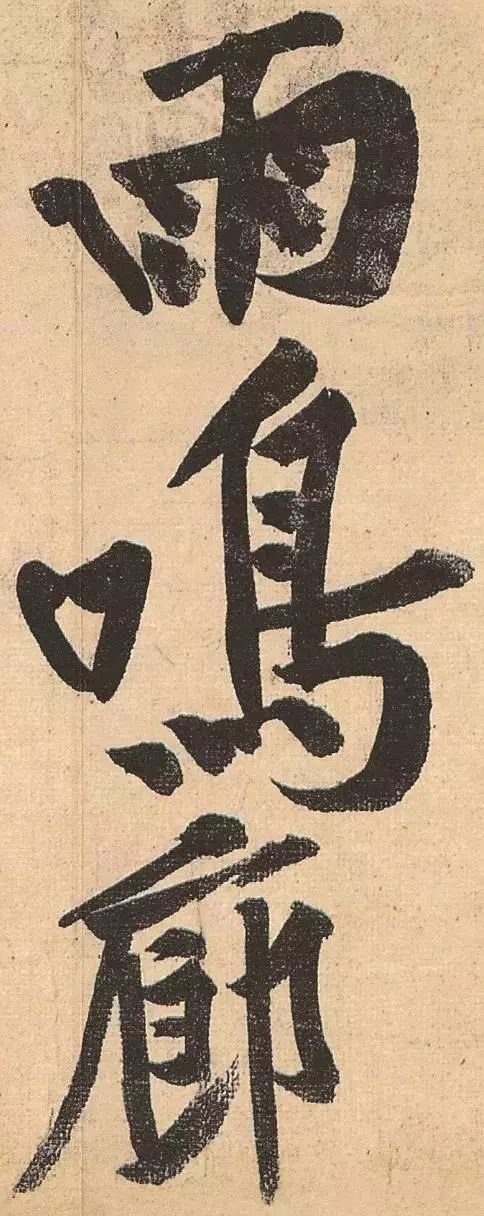 雨鳴廊